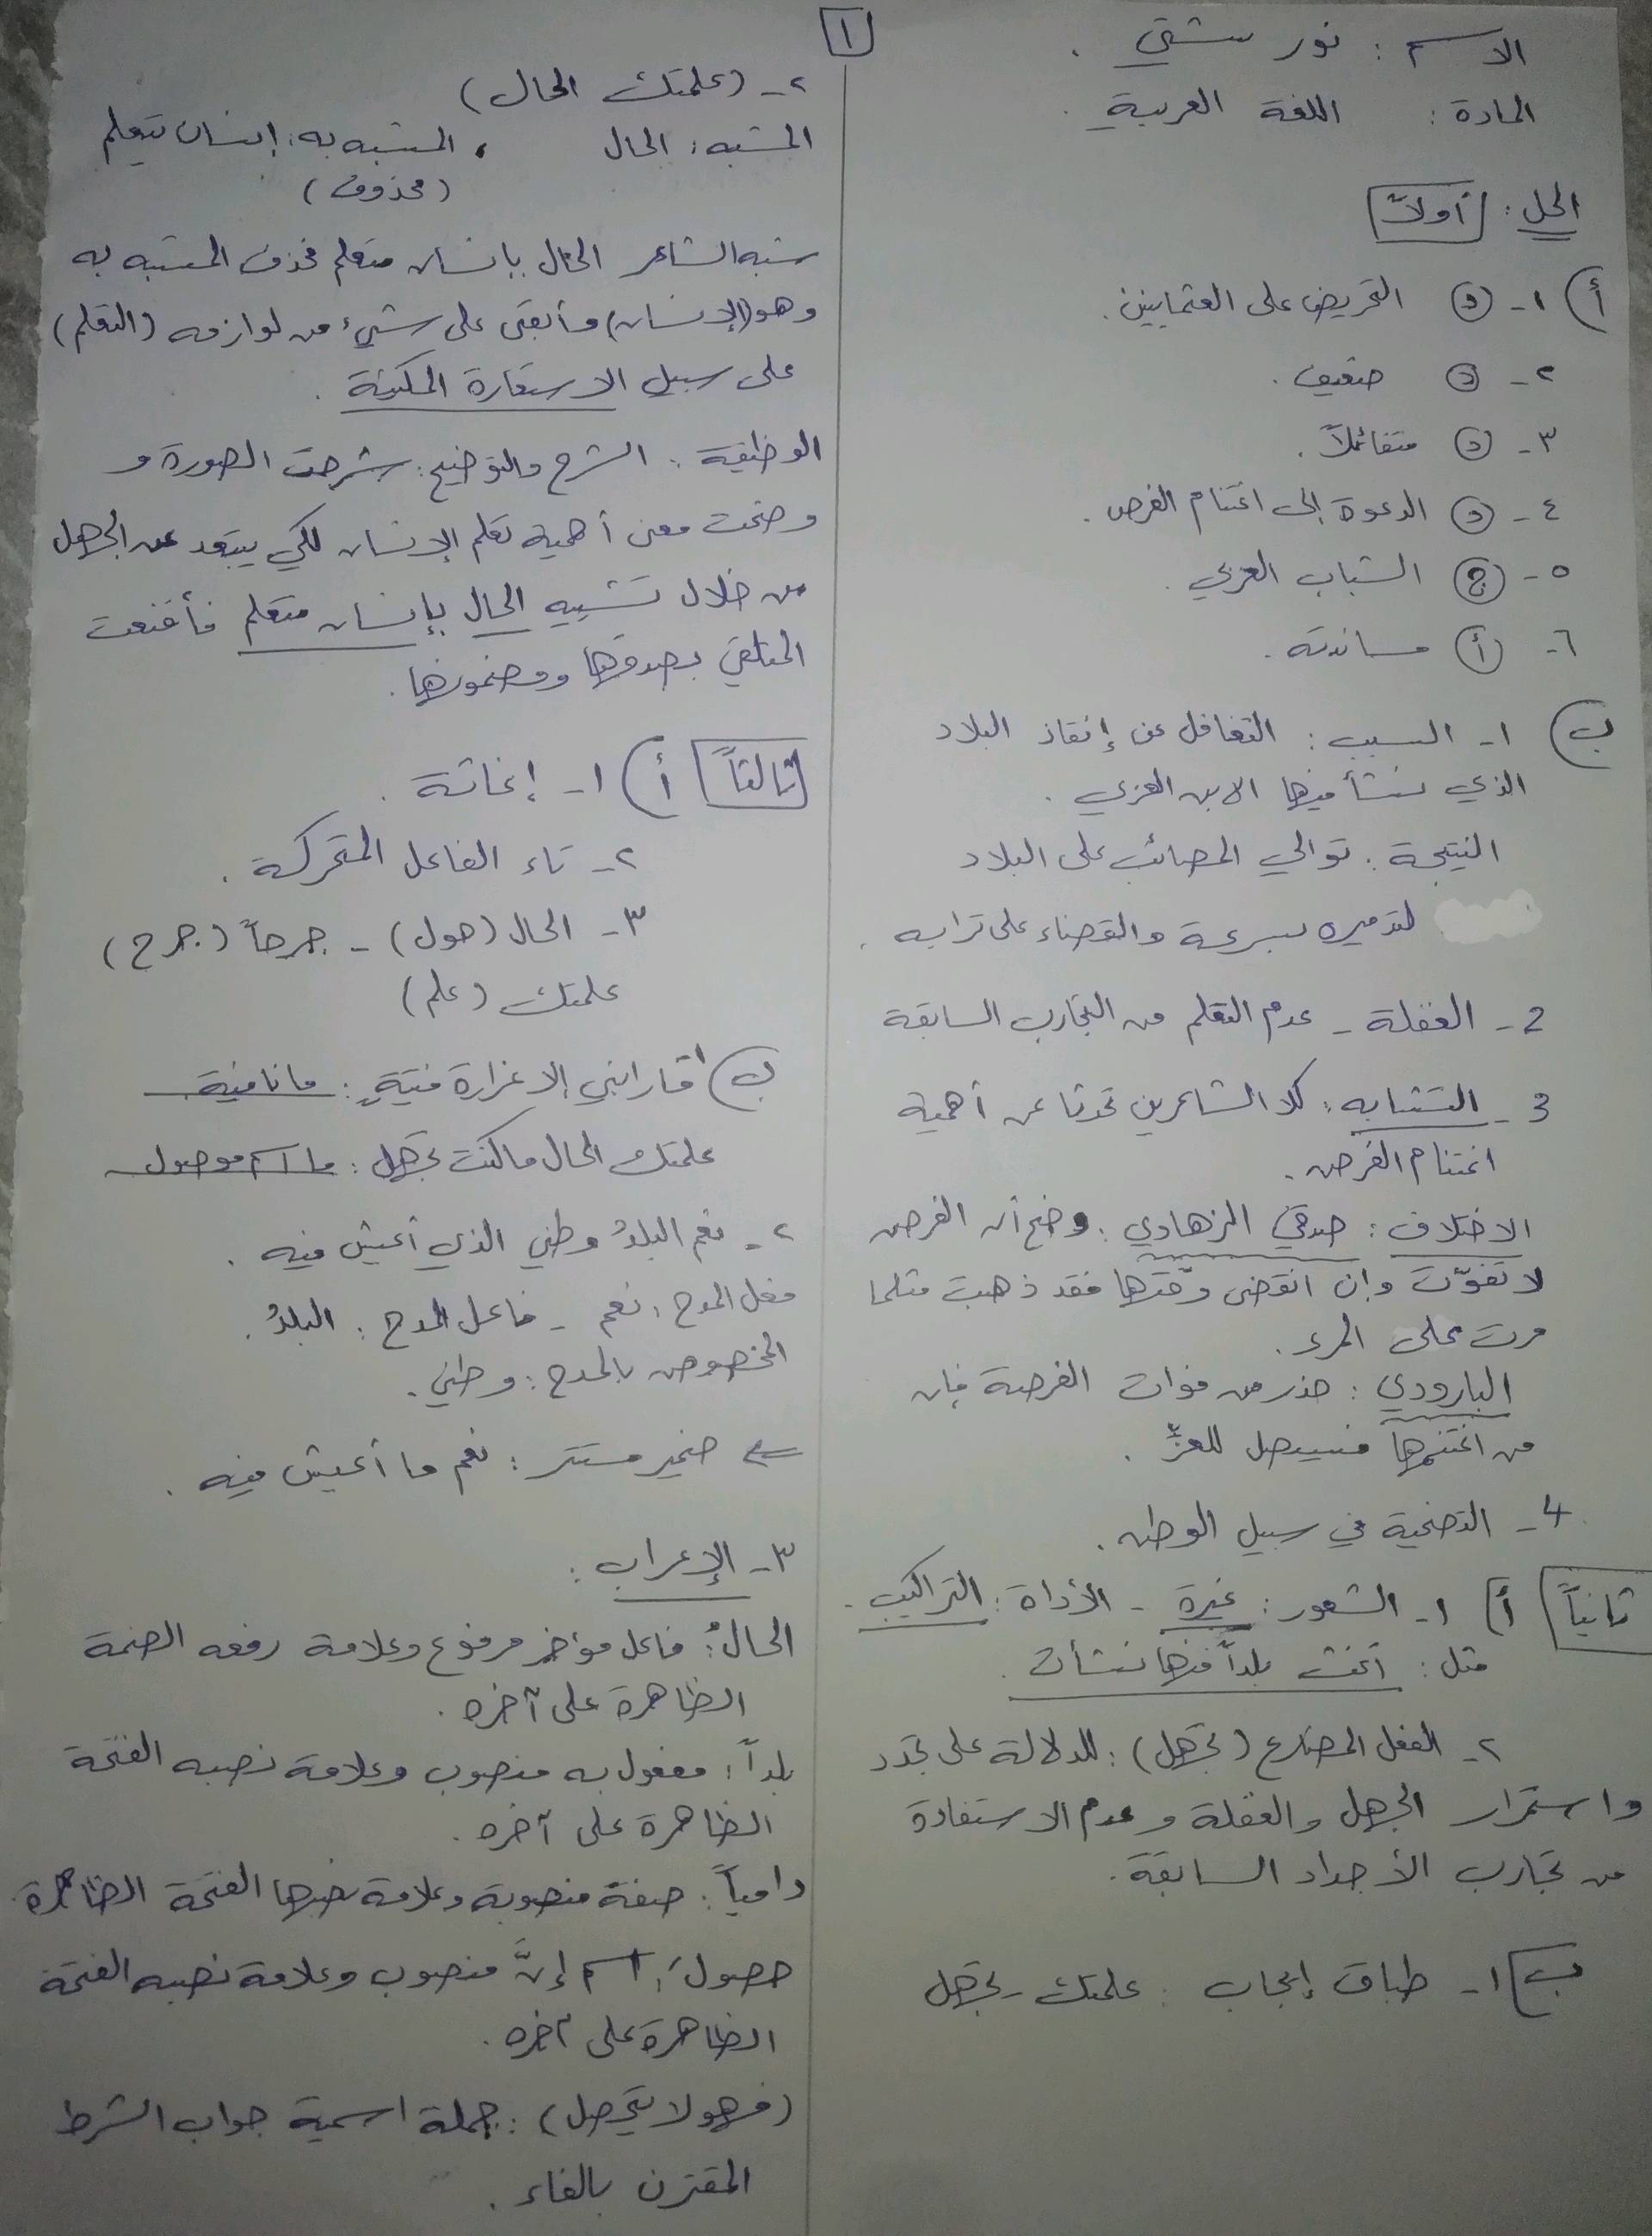 ١
الاسم : نور شتي .
المادة : اللغة العربية .
الحل : أولاً
أ) ١- د التحريض على العثمانيين .
٢- د ضعيف .
٣- د متفائلاً .
٤- د الدعوة إلى اغتنام الفرص .
٥- ج الشباب العربي .
٦- أ مساندته .
ب) ١- السبب : التغافل عن إنقاذ البلاد
الذي نشأ فيها الابن العربي .
النتيجة : توالي المصائب على البلاد
لتدميره بسرعة والقضاء على ترابه .
2- الغفلة - عدم التعلم من التجارب السابقة
3- التشابه : كلا الشاعرين تحدثا عن أهمية
اغتنام الفرص .
الاختلاف : صدقي الزهاوي : وضح أن الفرص
لا تفوّت وإن انقضى وقتها فقد ذهبت مثلما
مرت على المرء .
البارودي : حذر من فوات الفرصة فإن
من اغتنمها فسيصل للعزِّ .
4- التضحية في سبيل الوطن .
ثانياً أ) ١- الشعور : غيرة - الأداة : التراكيب .
مثل : أغث بلداً منها نشأت .
٢- الفعل المضارع (تجهل) : للدلالة على تجدد
واستمرار الجهل والغفلة وعدم الاستفادة
من تجارب الأجداد السابقة .
ب) ١- طباق إيجاب : علمتك - تجهل
٢- (علمتك الحال)
المشبه : الحال ، المشبه به : إنسان يتعلم
(محذوف)
شبه الشاعر الحال بإنسان متعلم فحذف المشبه به
وهو (الإنسان) وأبقى على شيء من لوازمه (التعلم)
على سبيل الاستعارة المكنية .
الوظيفة : الشرح والتوضيح : شرحت الصورة و
وضحت معنى أهمية تعلم الإنسان لكي يبتعد عن الجهل
من خلال تشبيه الحال بإنسان متعلم فأقنعت
المتلقي بصدقها ومضمونها .
ثالثاً أ) ١- إغاثة .
٢- تاء الفاعل المتحركة .
٣- الحال (حول) - جرحاً (جرح)
علمتك (علم)
ب) ١ فما رابني إلا غرارة فتيةٍ : ما نافية .
علمتك الحال ما كنت تجهل : ما اسم موصول .
٢- نعم البلدُ وطني الذي أعيش فيه .
فعل المدح : نعم - فاعل المدح : البلدُ .
المخصوص بالمدح : وطني .
⇐ ضمير مستتر : نعم ما أعيش فيه .
٣- الإعراب :
الحالُ : فاعل مؤخر مرفوع وعلامة رفعه الضمة
الظاهرة على آخره .
بلداً : مفعول به منصوب وعلامة نصبه الفتحة
الظاهرة على آخره .
دامياً : صفة منصوبة وعلامة نصبها الفتحة الظاهرة .
حصولَ : اسم إنَّ منصوب وعلامة نصبه الفتحة
الظاهرة على آخره .
(فهو لا يتحصل) : جملة اسمية جواب الشرط
المقترن بالفاء .